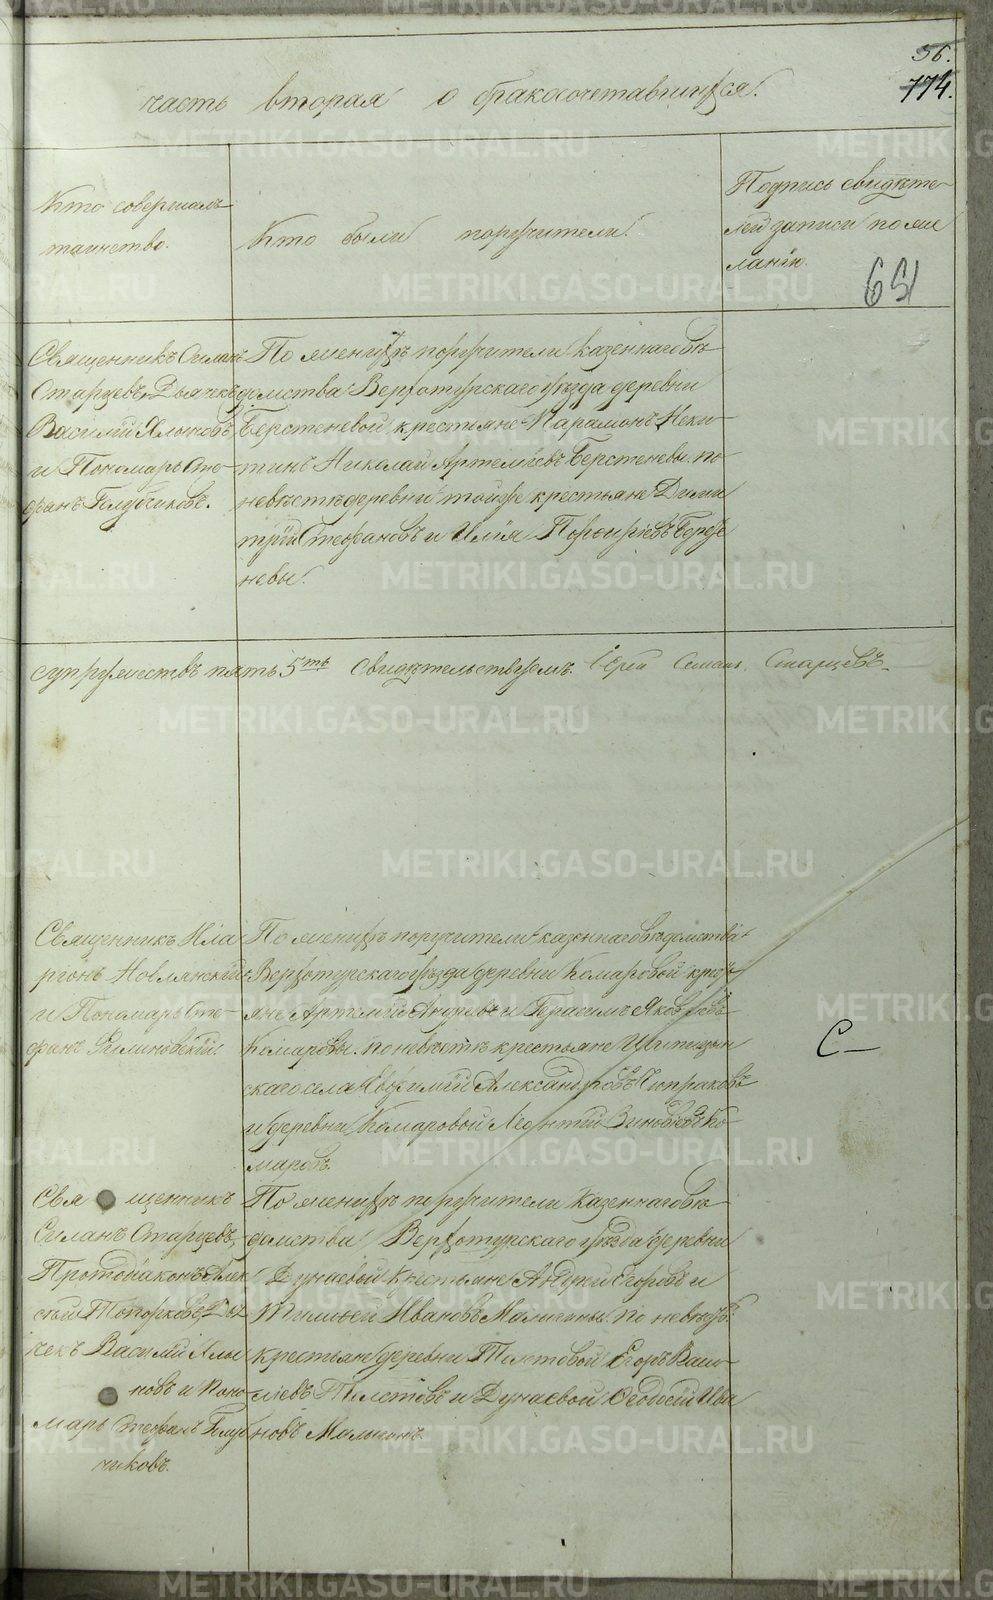 56.
774.
часть вторая о бракосочетавшихся.
Кто совершалъ
таинство.
Кто были поручители.
Подпись свидѣте-
лей записи по же
ланію.
651
Священникъ Силанъ
Старцевъ, Дьячекъ
Василій Ялыновъ
и Пономарь Сте-
фанъ Голубчиковъ.
По женихѣ поручители казеннаго вѣ
домства Верхотурскаго уѣзда деревни
Берстеневой крестьяне Парамонъ Ники
тинъ Николай Артемьевъ Берстеневы. по
невѣстѣ деревни тойже крестьяне Дими
трій Стефановъ и Илія Порфирьевъ Берсте
невы.
супружествъ пять 5ть свидѣтельствуемъ. Іерей Силанъ Старцевъ
Священникъ Ила-
ріонъ Невлянскій
и Пономарь Сте-
фанъ
По женихѣ поручители казеннаго вѣдомства
Верхотурскаго уѣзда деревни Комаровой кресть
яне Артемій Андреевъ и Герасимъ Яковлевъ
Комаровы. по невѣстѣ крестьяне
скаго села Евфимій Александровъ Чипраковъ
и деревни Комаровой Леонтій Зиновьевъ Ко
маровъ.
С
Свя щенникъ
Силанъ Старцевъ,
Протодіаконъ Алек
сѣй Топорковъ, Дья
чекъ Василій Ялы
новъ и Поно
марь Стефанъ Голуб
чиковъ.
По женихѣ поручители казеннаго вѣ
домства Верхотурскаго уѣзда деревни
Дунаевой крестьяне Андрей Егоровъ и
Тимофей Ивановъ Малыгины. по невѣстѣ
крестьяне деревни Толстовой Егоръ Васи
лиевъ Толстовъ и Дунаевой Феодосій Ива
новъ Малыгинъ.
METRIKI.GASO-URAL.RU